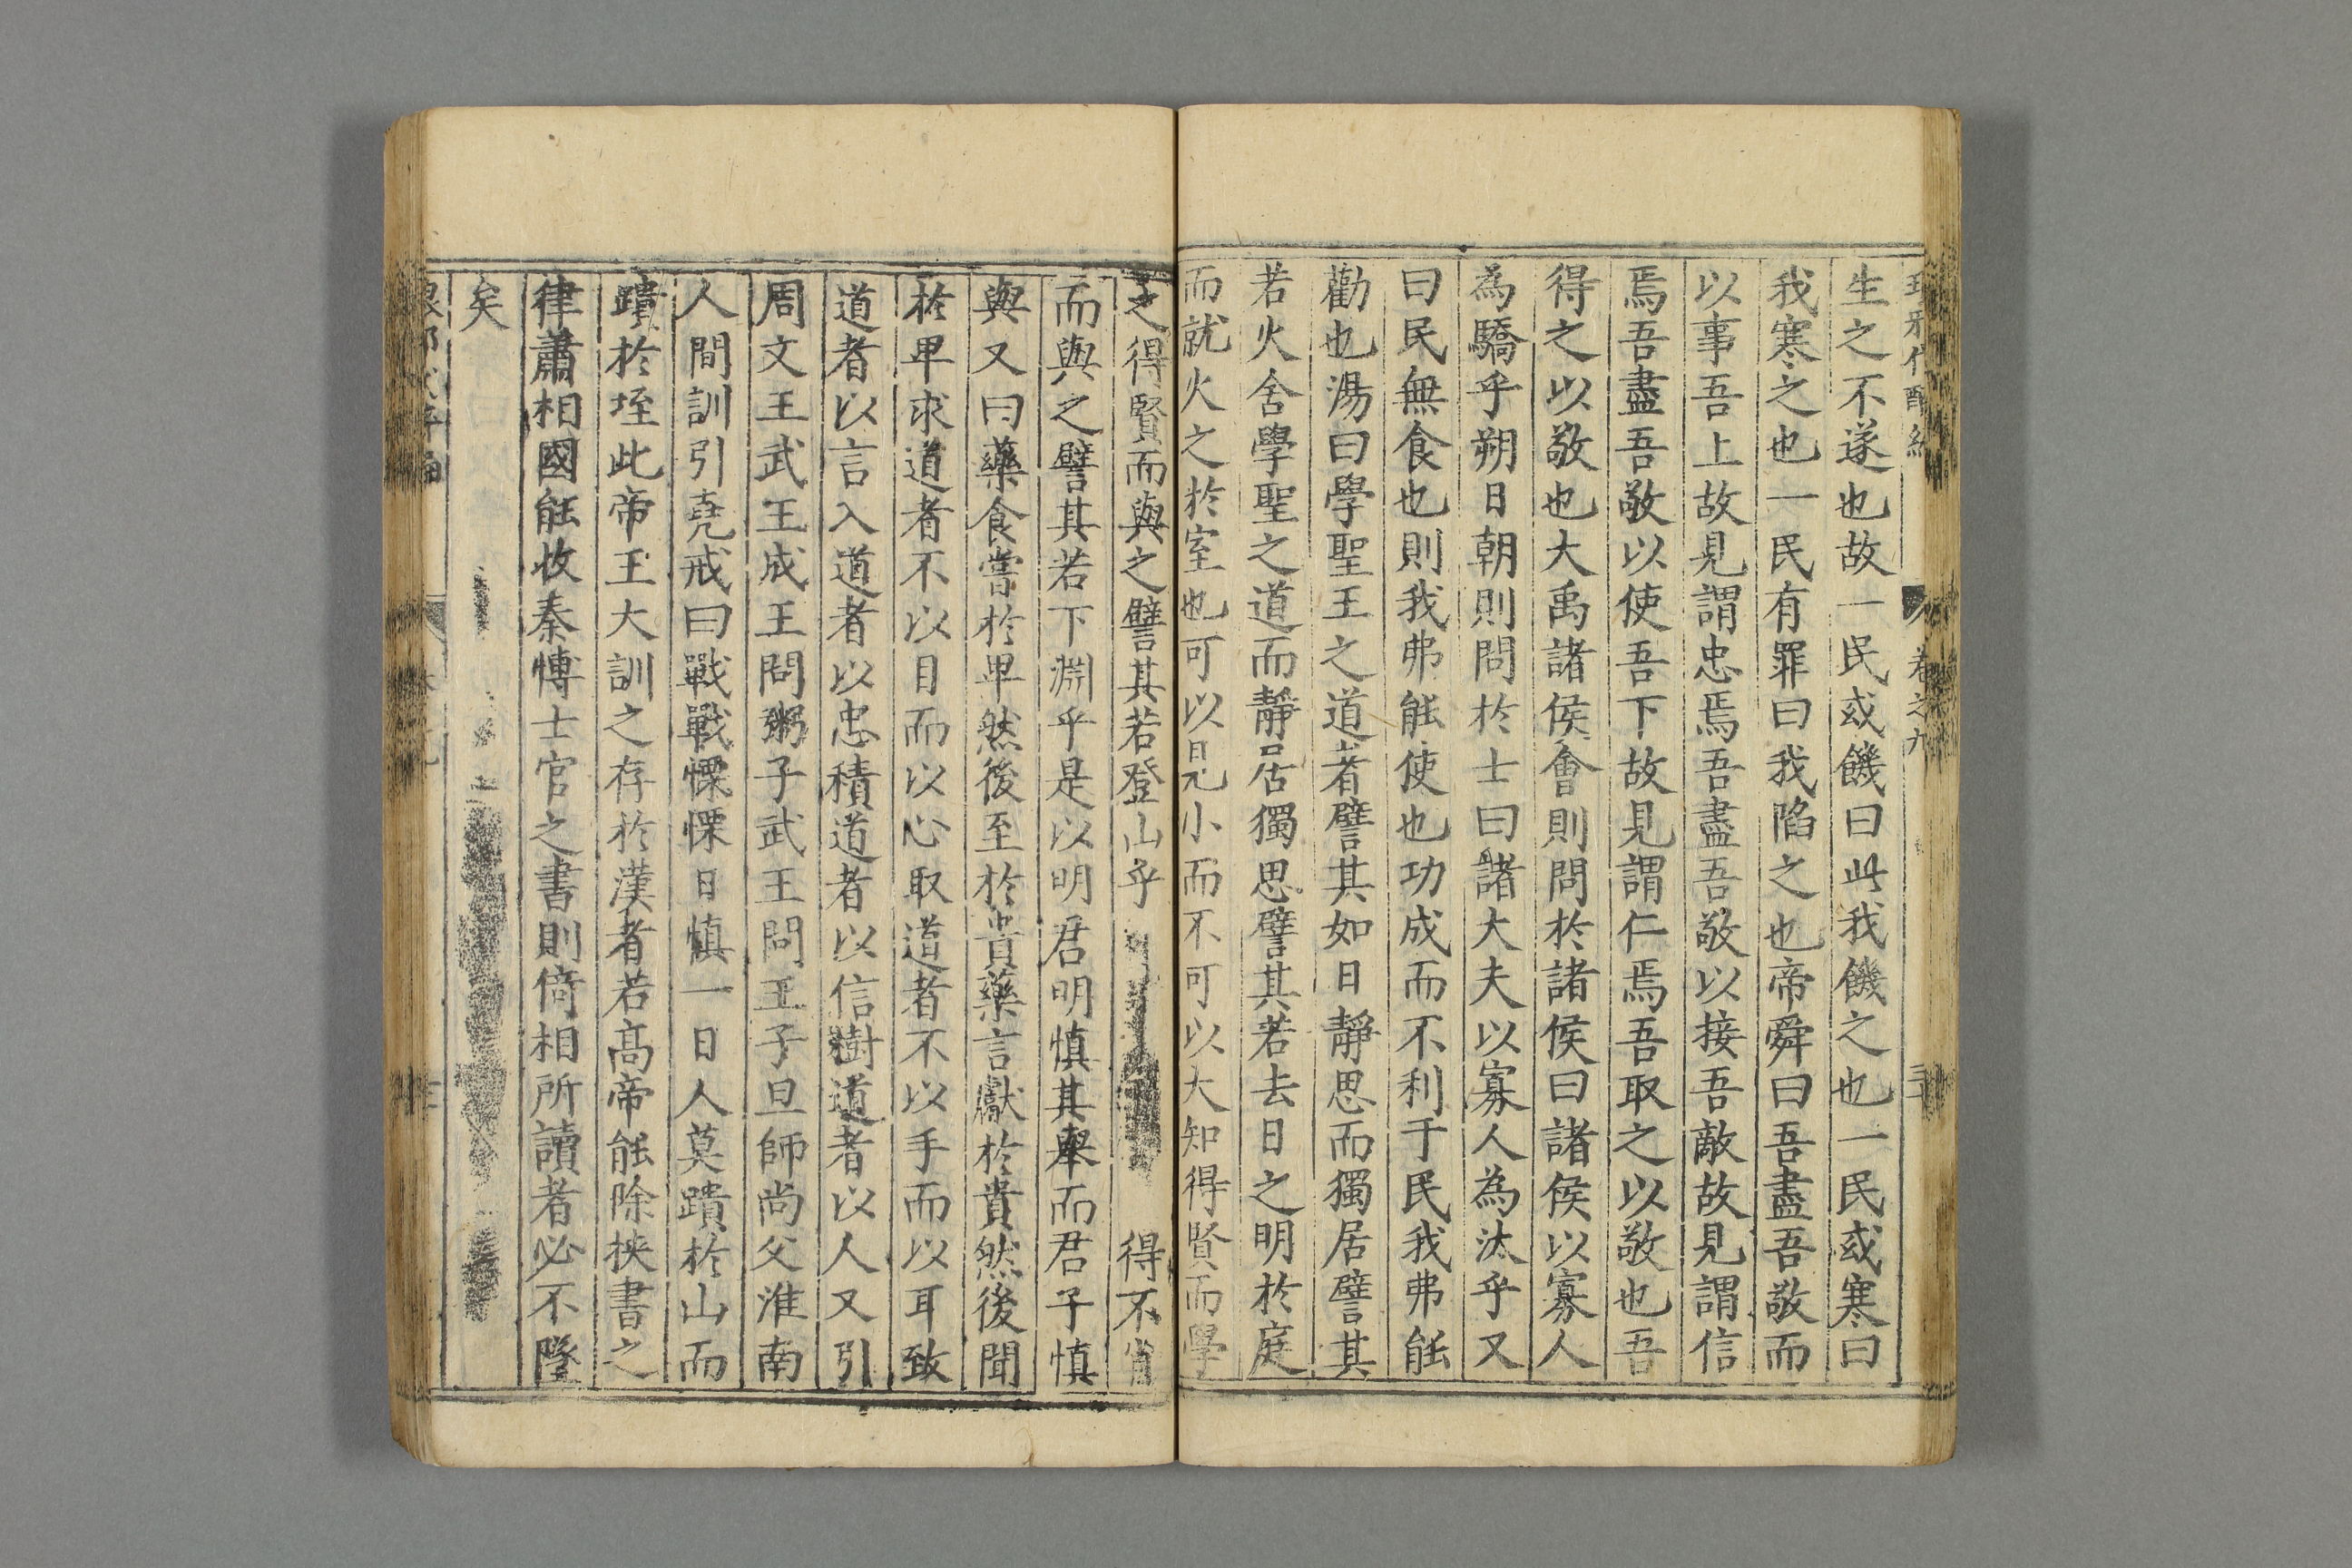 卷之九
生之不遂也故一民或饑曰此我饑之也一民或寒曰
我寒之也一民有罪曰我陷之也帝舜曰吾盡吾敬而
以事吾上故見謂忠焉吾盡吾敬以接吾敵故見謂信
焉吾盡吾敬以使吾下故見謂仁焉吾取之以敬也吾
得之以敬也大禹諸侯會則問於諸侯曰諸侯以寡人
為驕乎朔日朝則問於士曰諸大夫以寡人為汰乎又
曰民無食也則我弗能使也功成而不利于民我弗能
勸也湯曰學聖王之道者譬其如日靜思而獨居譬其
若火舍學聖之道而靜居獨思譬其若去日之明於庭
而就火之於室也可以見小而不可以大知得賢而學
之得賢而與之譬其若登山乎得不肖
而與之譬其若下淵乎是以明君明慎其舉而君子慎
與又曰藥食嘗於卑然後至於貴藥言獻於貴然後聞
於卑求道者不以目而以心取道者不以手而以耳致
道者以言入道者以忠積道者以信樹道者以人又引
周文王武王成王問粥子武王問王子旦師尚父淮南
人間訓引堯戒曰戰戰慄慄日慎一日人莫蹪於山而
蹪於垤此帝王大訓之存於漢者若高帝能除挾書之
律蕭相國能收秦愽士官之書則倚相所讀者必不墜
矣